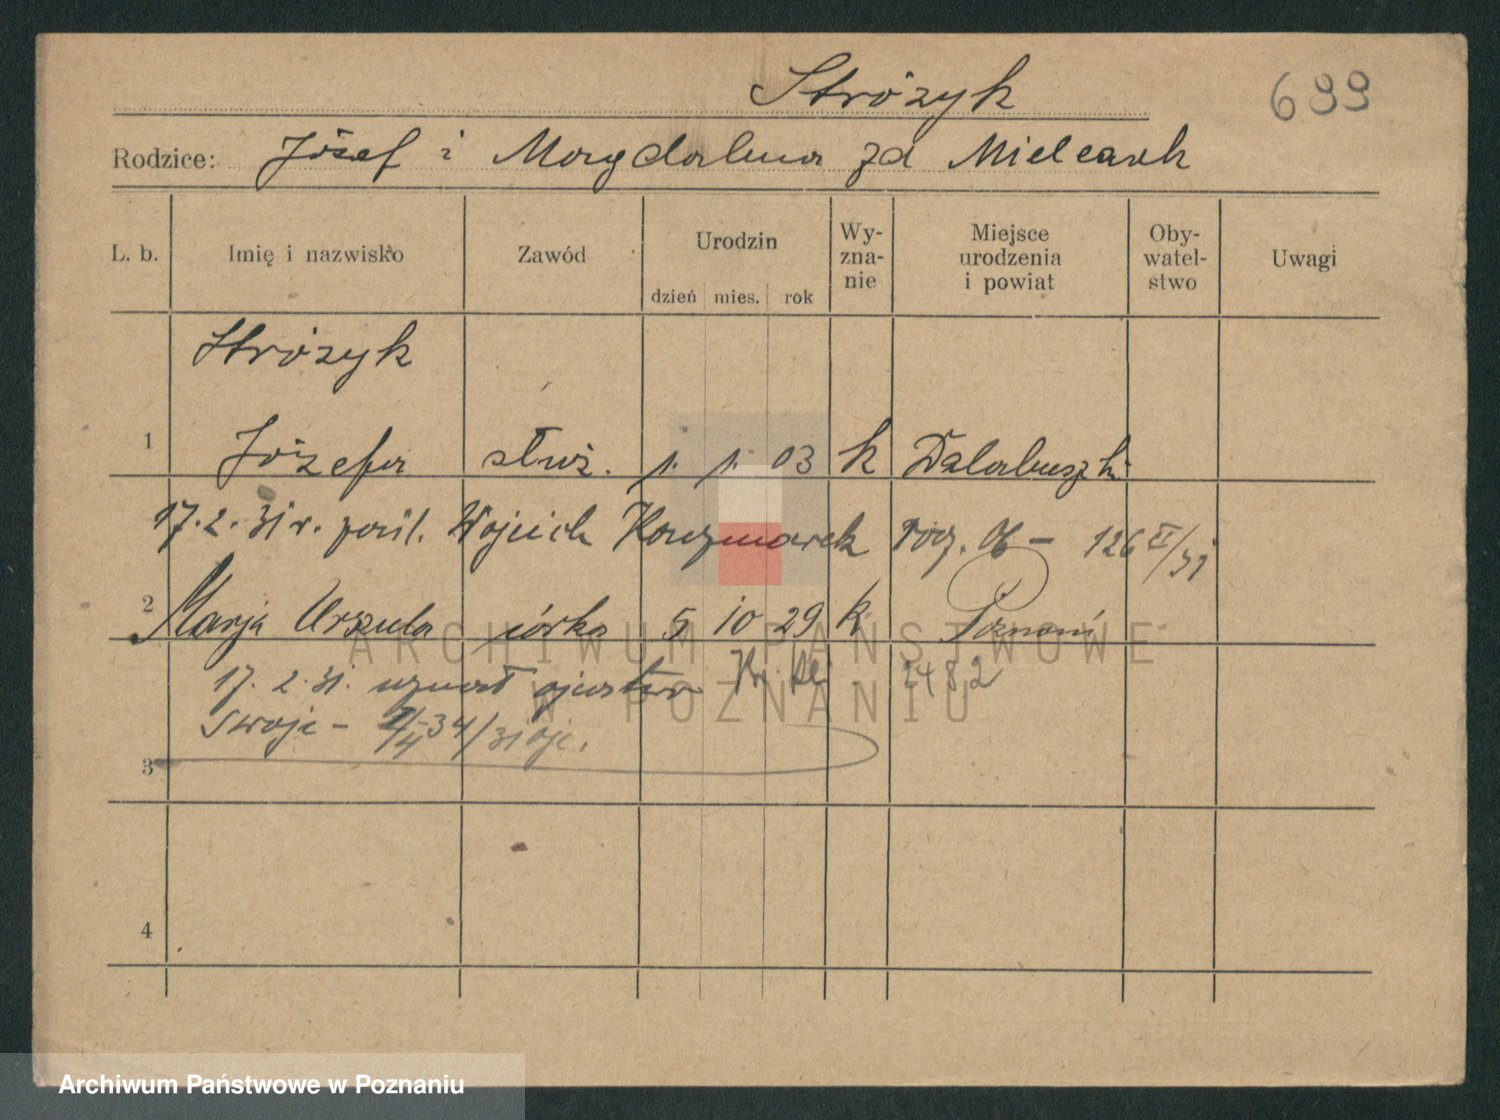 Stróżyk
699
Rodzice: Józef i Magdalena zd Mielcark
L. b. Imię i nazwisko Zawód Urodzin dzień mies. rok Wy-zna-nie Miejsce urodzenia i powiat Oby-watel-stwo Uwagi
Stróżyk
1 Józefa służ. 1. 1. 03 k Dalabuszki
17.2.31 r. pośl. Wojciech Kaczmarek 126 II/31
2 Marja Urszula córka 5 10 29 k Poznań
17. 2. 31. uznał ojcostwo 2482
swoje - 34/31
3
4
ARCHIWUM PAŃSTWOWE
W POZNANIU
Archiwum Państwowe w Poznaniu